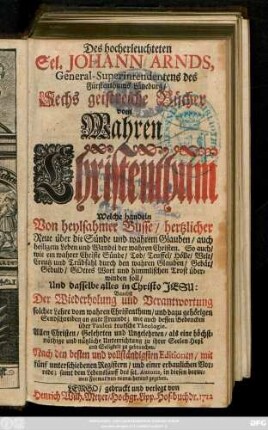 Des hocherleuchteten
Sel. JOHANN ARNDS,
General-Superintendentens des
Fürstenthums Lüneburg/
Sechs geistreiche Bücher
vom
Wahren
Christenthum
Welche handeln
Von heylsahmer Busse/ hertzlicher
Reue über die Sünde und wahrem Glauben/ auch
heiligem Leben und Wandel der wahren Christen. So auch/
wie ein wahrer Christe Sünde/ Tod/ Teuffel/ Hölle/ Welt/
Creutz und Trübsal durch den wahren Glauben/ Gebät/
Gedult/ GOttes Wort und himmlischen Trost über-
winden soll/
Und dasselbe alles in Christo JESU:
Der Wiederholung und Verantwortung
solcher Lehre vom wahren Christenthum/ und dazu gehörigen
Sendschreiben an gute Freunde; wie auch dessen Bedencken
über Tauleri teutsche Theologie.
Allen Christen/ Gelehrten und Ungelehrten/ als eine höchst-
nöthige und nützliche Unterrichtung zu ihrer Seelen Heyl
und Seligkeit zu gebrauchen.
Nach den besten und vollständigsten Editionen/ mit
fünf unterschiedenen Registern/ und einer erbaulichen Vor-
rede;
LEMGO/ gedruckt und verlegt von
Henrich Wilh. Meyer/ Hochgr. Lipp. Hof-Buchdr. 1722